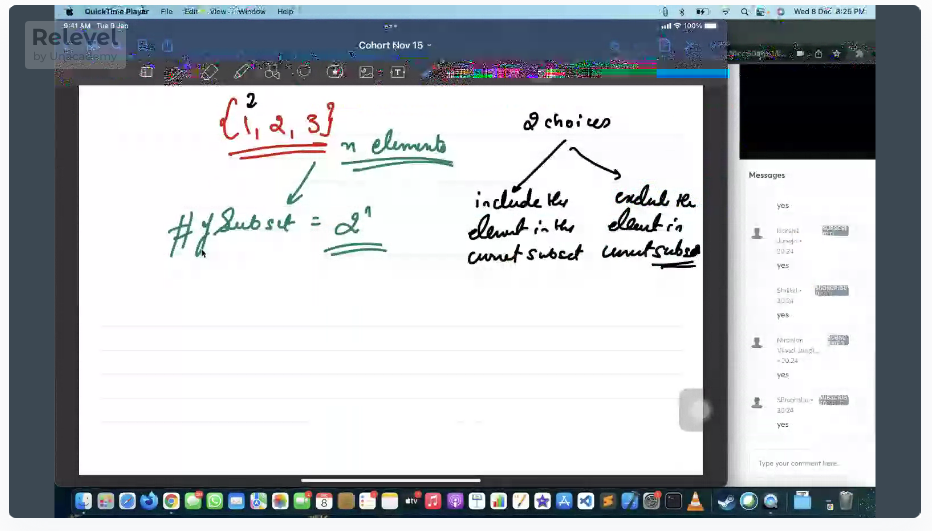 QuickTime Player File Edit View Window Help Wed 8 Dec 8:26 PM
9:41 AM Tue 9 Jan 100%
Relevel
by Unacademy
Cohort Nov 15
2
{1, 2, 3}
n elements
# of Subset = 2^n
2 choices
include the
element in the
current subset
exclude the
element in
current subset
Messages
yes
20:24
yes
20:24
yes
20:24
yes
20:24
yes
Type your comment here.